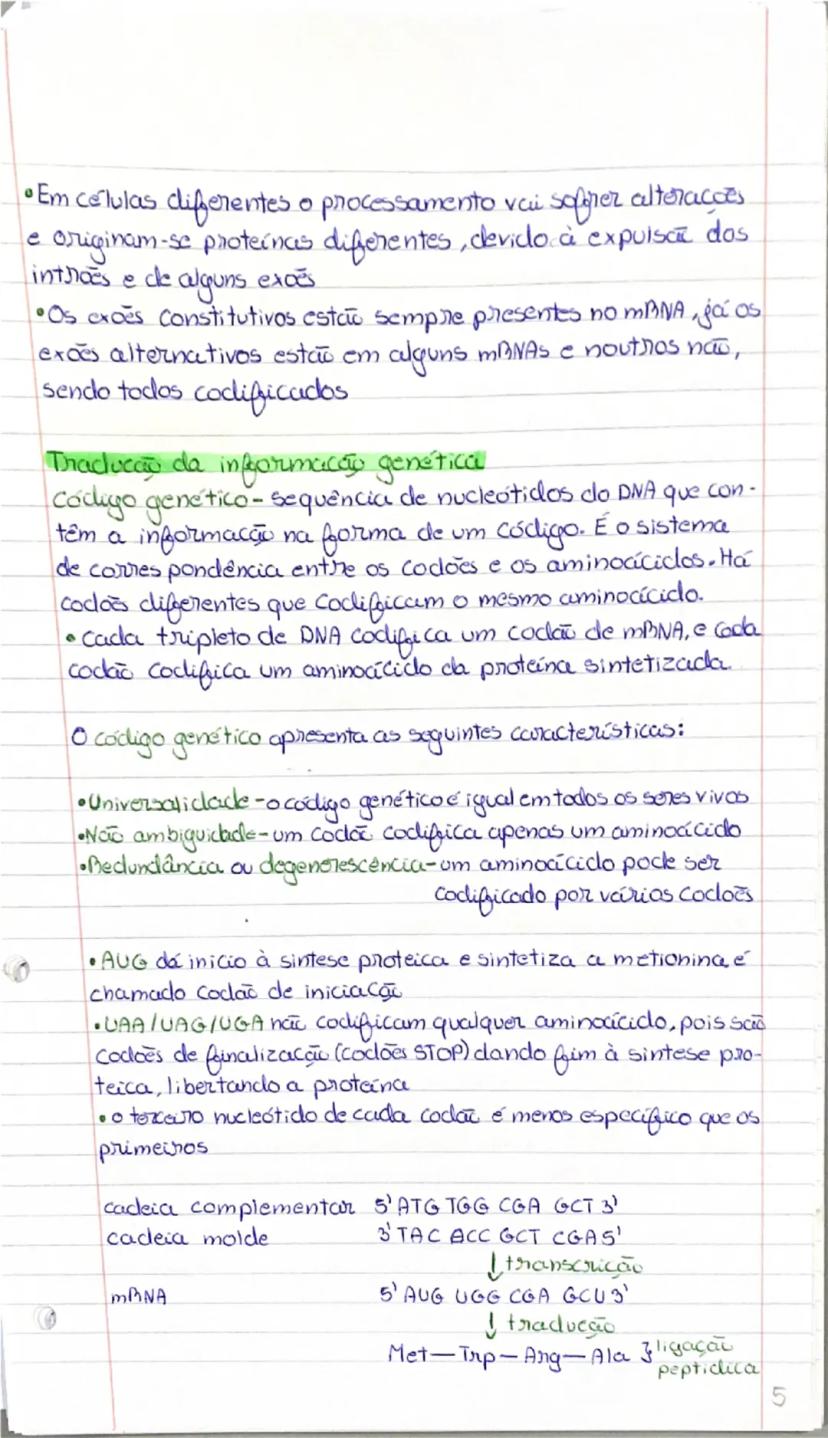 •Em células diferentes o processamento vai sofrer alterações
e originam-se proteínas diferentes, devido à expulsão dos
intrões e de alguns exões
•Os exões constitutivos estão sempre presentes no mRNA, já os
exões alternativos estão em alguns mRNAs e noutros não,
sendo todos codificados
Tradução da informação genética
Código genético - sequência de nucleótidos do DNA que con-
têm a informação na forma de um código. É o sistema
de correspondência entre os codões e os aminoácidos. Há
codões diferentes que codificam o mesmo aminoácido.
• Cada tripleto de DNA codifica um codão de mRNA, e cada
codão codifica um aminoácido da proteína sintetizada.
O código genético apresenta as seguintes características:
•Universalidade - o código genético é igual em todos os seres vivos
•Não ambiguidade - um codão codifica apenas um aminoácido
•Redundância ou degenerescência - um aminoácido pode ser
codificado por vários codões
• AUG dá inicio à sintese proteica e sintetiza a metionina, é
chamado codão de iniciação
•UAA/UAG/UGA não codificam qualquer aminoácido, pois são
codões de finalização (codões STOP) dando fim à sintese pro-
teica, libertando a proteína
•o terceiro nucleótido de cada codão é menos específico que os
primeiros
cadeia complementar 5' ATG TGG CGA GCT 3'
cadeia molde 3' TAC ACC GCT CGA 5'
↓ transcrição
mRNA 5' AUG UGG CGA GCU 3'
↓ tradução
Met — Trp — Arg — Ala } ligação
peptidica
5